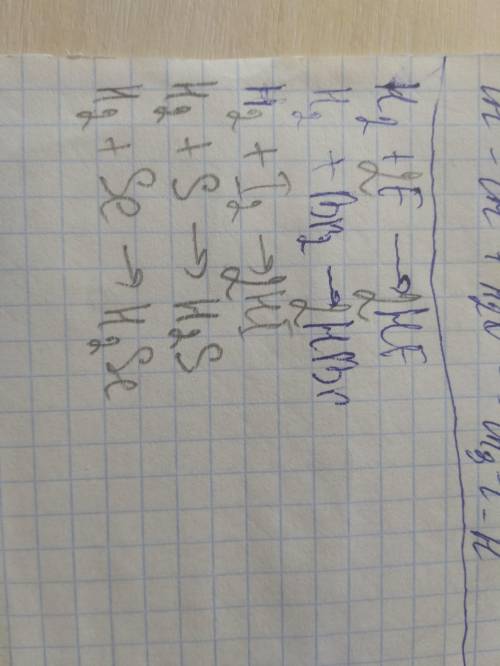 H₂ + 2F → 2HF
H₂ + Br₂ → 2HBr
H₂ + I₂ → 2HI
H₂ + S → H₂S
H₂ + Se → H₂Se